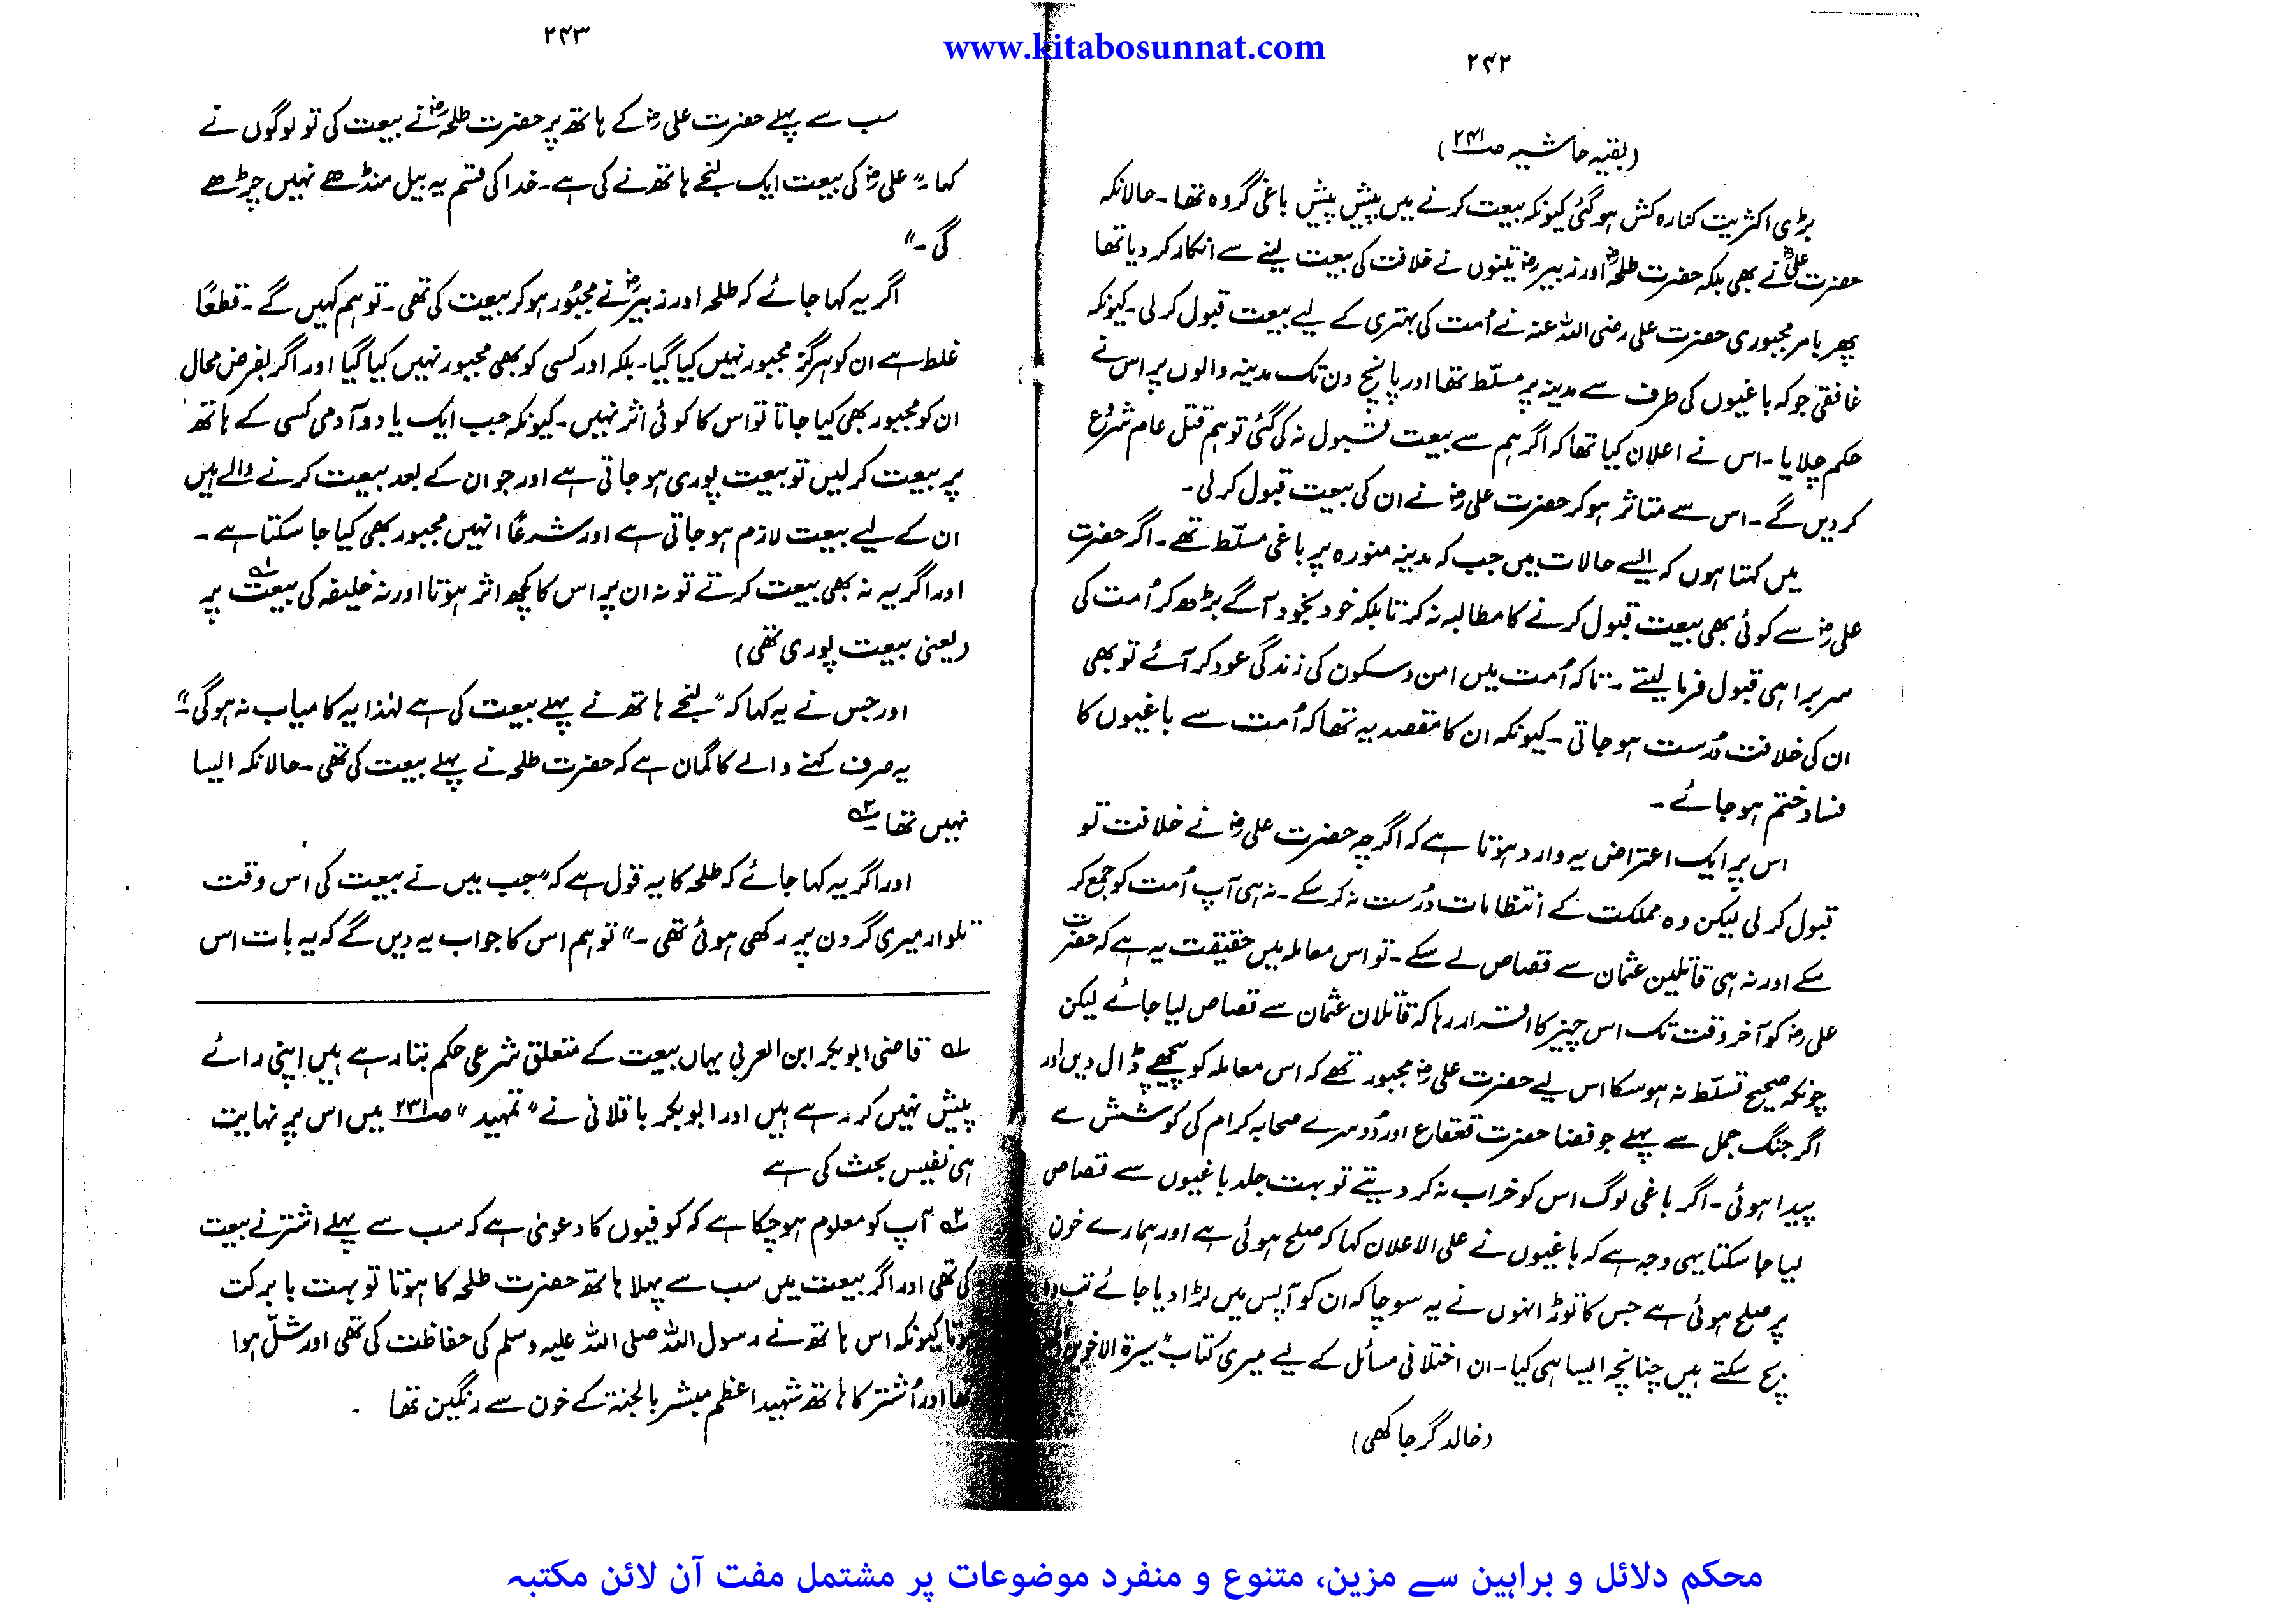 www.kitabosunnat.com
۲۴۲
(بقیہ حاشیہ صـ۲۴۱)
بڑی اکثریت کنارہ کش ہو گئی کیونکہ بیعت کرنے میں پیش پیش باغی گروہ تھا۔ حالانکہ
حضرت علیؓ نے بھی بلکہ حضرت طلحہؓ اور زبیرؓ تینوں نے خلافت کی بیعت لینے سے انکار کر دیا تھا
پھر بامر مجبوری حضرت علی رضی اللہ عنہ نے اُمت کی بہتری کے لیے بیعت قبول کر لی۔ کیونکہ
غافقی جو کہ باغیوں کی طرف سے مدینہ پر مسلّط تھا اور پانچ دن تک مدینہ والوں پر اس نے
حکم چلایا۔ اس نے اعلان کیا تھا کہ اگر ہم سے بیعت قبول نہ کی گئی تو ہم قتل عام شروع
کر دیں گے۔ اس سے متاثر ہو کر حضرت علیؓ نے ان کی بیعت قبول کر لی۔
میں کہتا ہوں کہ ایسے حالات میں جب کہ مدینہ منورہ پر باغی مسلّط تھے۔ اگر حضرت
علیؓ سے کوئی بھی بیعت قبول کرنے کا مطالبہ نہ کرتا بلکہ خود بخود آگے بڑھ کر اُمت کی
سربراہی قبول فرما لیتے۔ تاکہ اُمت میں امن و سکون کی زندگی عود کر آئے تو بھی
ان کی خلافت دُرست ہو جاتی۔ کیونکہ ان کا مقصد یہ تھا کہ اُمت سے باغیوں کا
فساد ختم ہو جائے۔
اس پر ایک اعتراض یہ وارد ہوتا ہے کہ اگرچہ حضرت علیؓ نے خلافت تو
قبول کر لی لیکن وہ مملکت کے انتظامات دُرست نہ کر سکے۔ نہ ہی آپ اُمت کو جمع کر
سکے اور نہ ہی قاتلین عثمان سے قصاص لے سکے۔ تو اس معاملہ میں حقیقت یہ ہے کہ حضرت
علیؓ کو آخر وقت تک اس چیز کا اقرار رہا کہ قاتلان عثمان سے قصاص لیا جائے لیکن
چونکہ صحیح تسلّط نہ ہو سکا اس لیے حضرت علیؓ مجبور تھے کہ اس معاملہ کو پیچھے ڈال دیں اور
اگر جنگ جمل سے پہلے جو فضا حضرت قعقاع اور دُوسرے صحابہ کرام کی کوشش سے
پیدا ہوئی۔ اگر باغی لوگ اس کو خراب نہ کر دیتے تو بہت جلد باغیوں سے قصاص
لیا جا سکتا یہی وجہ ہے کہ باغیوں نے علی الاعلان کہا کہ صلح ہوئی ہے اور ہمارے خون
پر صلح ہوئی ہے جس کا توڑ انہوں نے یہ سوچا کہ ان کو آپس میں لڑا دیا جائے تب وہ
بچ سکتے ہیں چنانچہ ایسا ہی کیا۔ ان اختلافی مسائل کے لیے میری کتاب "سیرۃ الاخوین
(خالد گرجاکھی)
۲۴۳
سب سے پہلے حضرت علیؓ کے ہاتھ پر حضرت طلحہؓ نے بیعت کی تو لوگوں نے
کہا۔ "علیؓ کی بیعت ایک لنجے ہاتھ نے کی ہے۔ خدا کی قسم یہ بیل منڈھے نہیں چڑھے
گی۔"
اگر یہ کہا جائے کہ طلحہ اور زبیرؓ نے مجبُور ہو کر بیعت کی تھی۔ تو ہم کہیں گے۔ قطعًا
غلط ہے ان کو ہرگز مجبور نہیں کیا گیا۔ بلکہ اور کسی کو بھی مجبور نہیں کیا گیا اور اگر بفرض محال
ان کو مجبور بھی کیا جاتا تو اس کا کوئی اثر نہیں۔ کیونکہ جب ایک یا دو آدمی کسی کے ہاتھ
پر بیعت کر لیں تو بیعت پوری ہو جاتی ہے اور جو ان کے بعد بیعت کرنے والے ہیں
ان کے لیے بیعت لازم ہو جاتی ہے اور شرعًا انہیں مجبور بھی کیا جا سکتا ہے۔
اور اگر یہ نہ بھی بیعت کرتے تو نہ ان پر اس کا کچھ اثر ہوتا اور نہ خلیفہ کی بیعت ۱؎ پر
(یعنی بیعت پوری تھی)
اور جس نے یہ کہا کہ "لنجے ہاتھ نے پہلے بیعت کی ہے لہٰذا یہ کامیاب نہ ہو گی"۔
یہ صرف کہنے والے کا گمان ہے کہ حضرت طلحہ نے پہلے بیعت کی تھی۔ حالانکہ ایسا
نہیں تھا۔ ۲؎
اور اگر یہ کہا جائے کہ طلحہ کا یہ قول ہے کہ "جب میں نے بیعت کی اس وقت
تلوار میری گردن پر رکھی ہوئی تھی۔" تو ہم اس کا جواب یہ دیں گے کہ یہ بات اس
۱؎ قاضی ابوبکر ابن العربی یہاں بیعت کے متعلق شرعی حکم بتا رہے ہیں اپنی رائے
پیش نہیں کر رہے ہیں اور ابوبکر باقلانی نے "تمہید" صـ۲۳۱ میں اس پر نہایت
ہی نفیس بحث کی ہے
۲؎ آپ کو معلوم ہو چکا ہے کہ کوفیوں کا دعویٰ ہے کہ سب سے پہلے اشتر نے بیعت
کی تھی اور اگر بیعت میں سب سے پہلا ہاتھ حضرت طلحہ کا ہوتا تو بہت بابرکت
ہوتا کیونکہ اس ہاتھ نے رسول اللہ صلی اللہ علیہ وسلم کی حفاظت کی تھی اور شلّ ہوا
تھا اور اُشتر کا ہاتھ شہید اعظم مبشر بالجنۃ کے خون سے رنگین تھا
محکم دلائل و براہین سے مزین، متنوع و منفرد موضوعات پر مشتمل مفت آن لائن مکتبہ